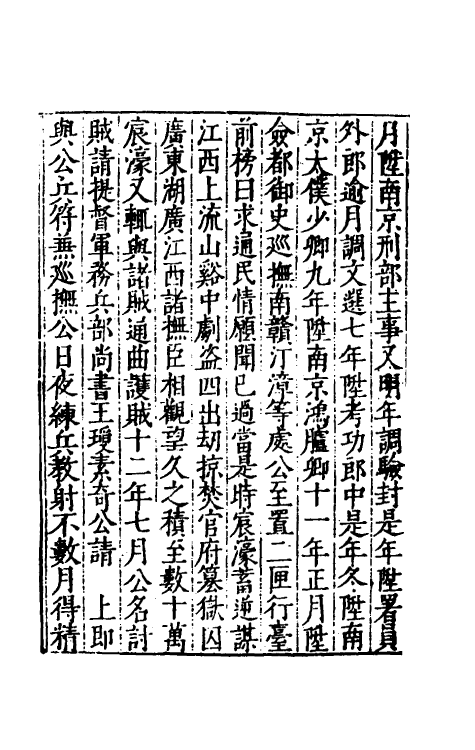 月陞南京刑部主事又明年調驗封是年陞署員
外郎逾月調文選七年陞考功郎中是年冬陞南
京太僕少卿九年陞南京鴻臚卿十一年正月陞
僉都御史巡撫南贛汀漳等處公至置二匣行臺
前榜曰求通民情願聞已過當是時宸濠蓄逆謀
江西上流山谿中劇盜四出劫掠焚官府篡獄囚
廣東湖廣江西諸撫臣相觀望久之積至數十萬
宸濠又輒與諸賊通曲護賊十二年七月公名討
賊請提督軍務兵部尚書王瓊素奇公請　上即
與公兵符無巡撫公日夜練兵教射不數月得精